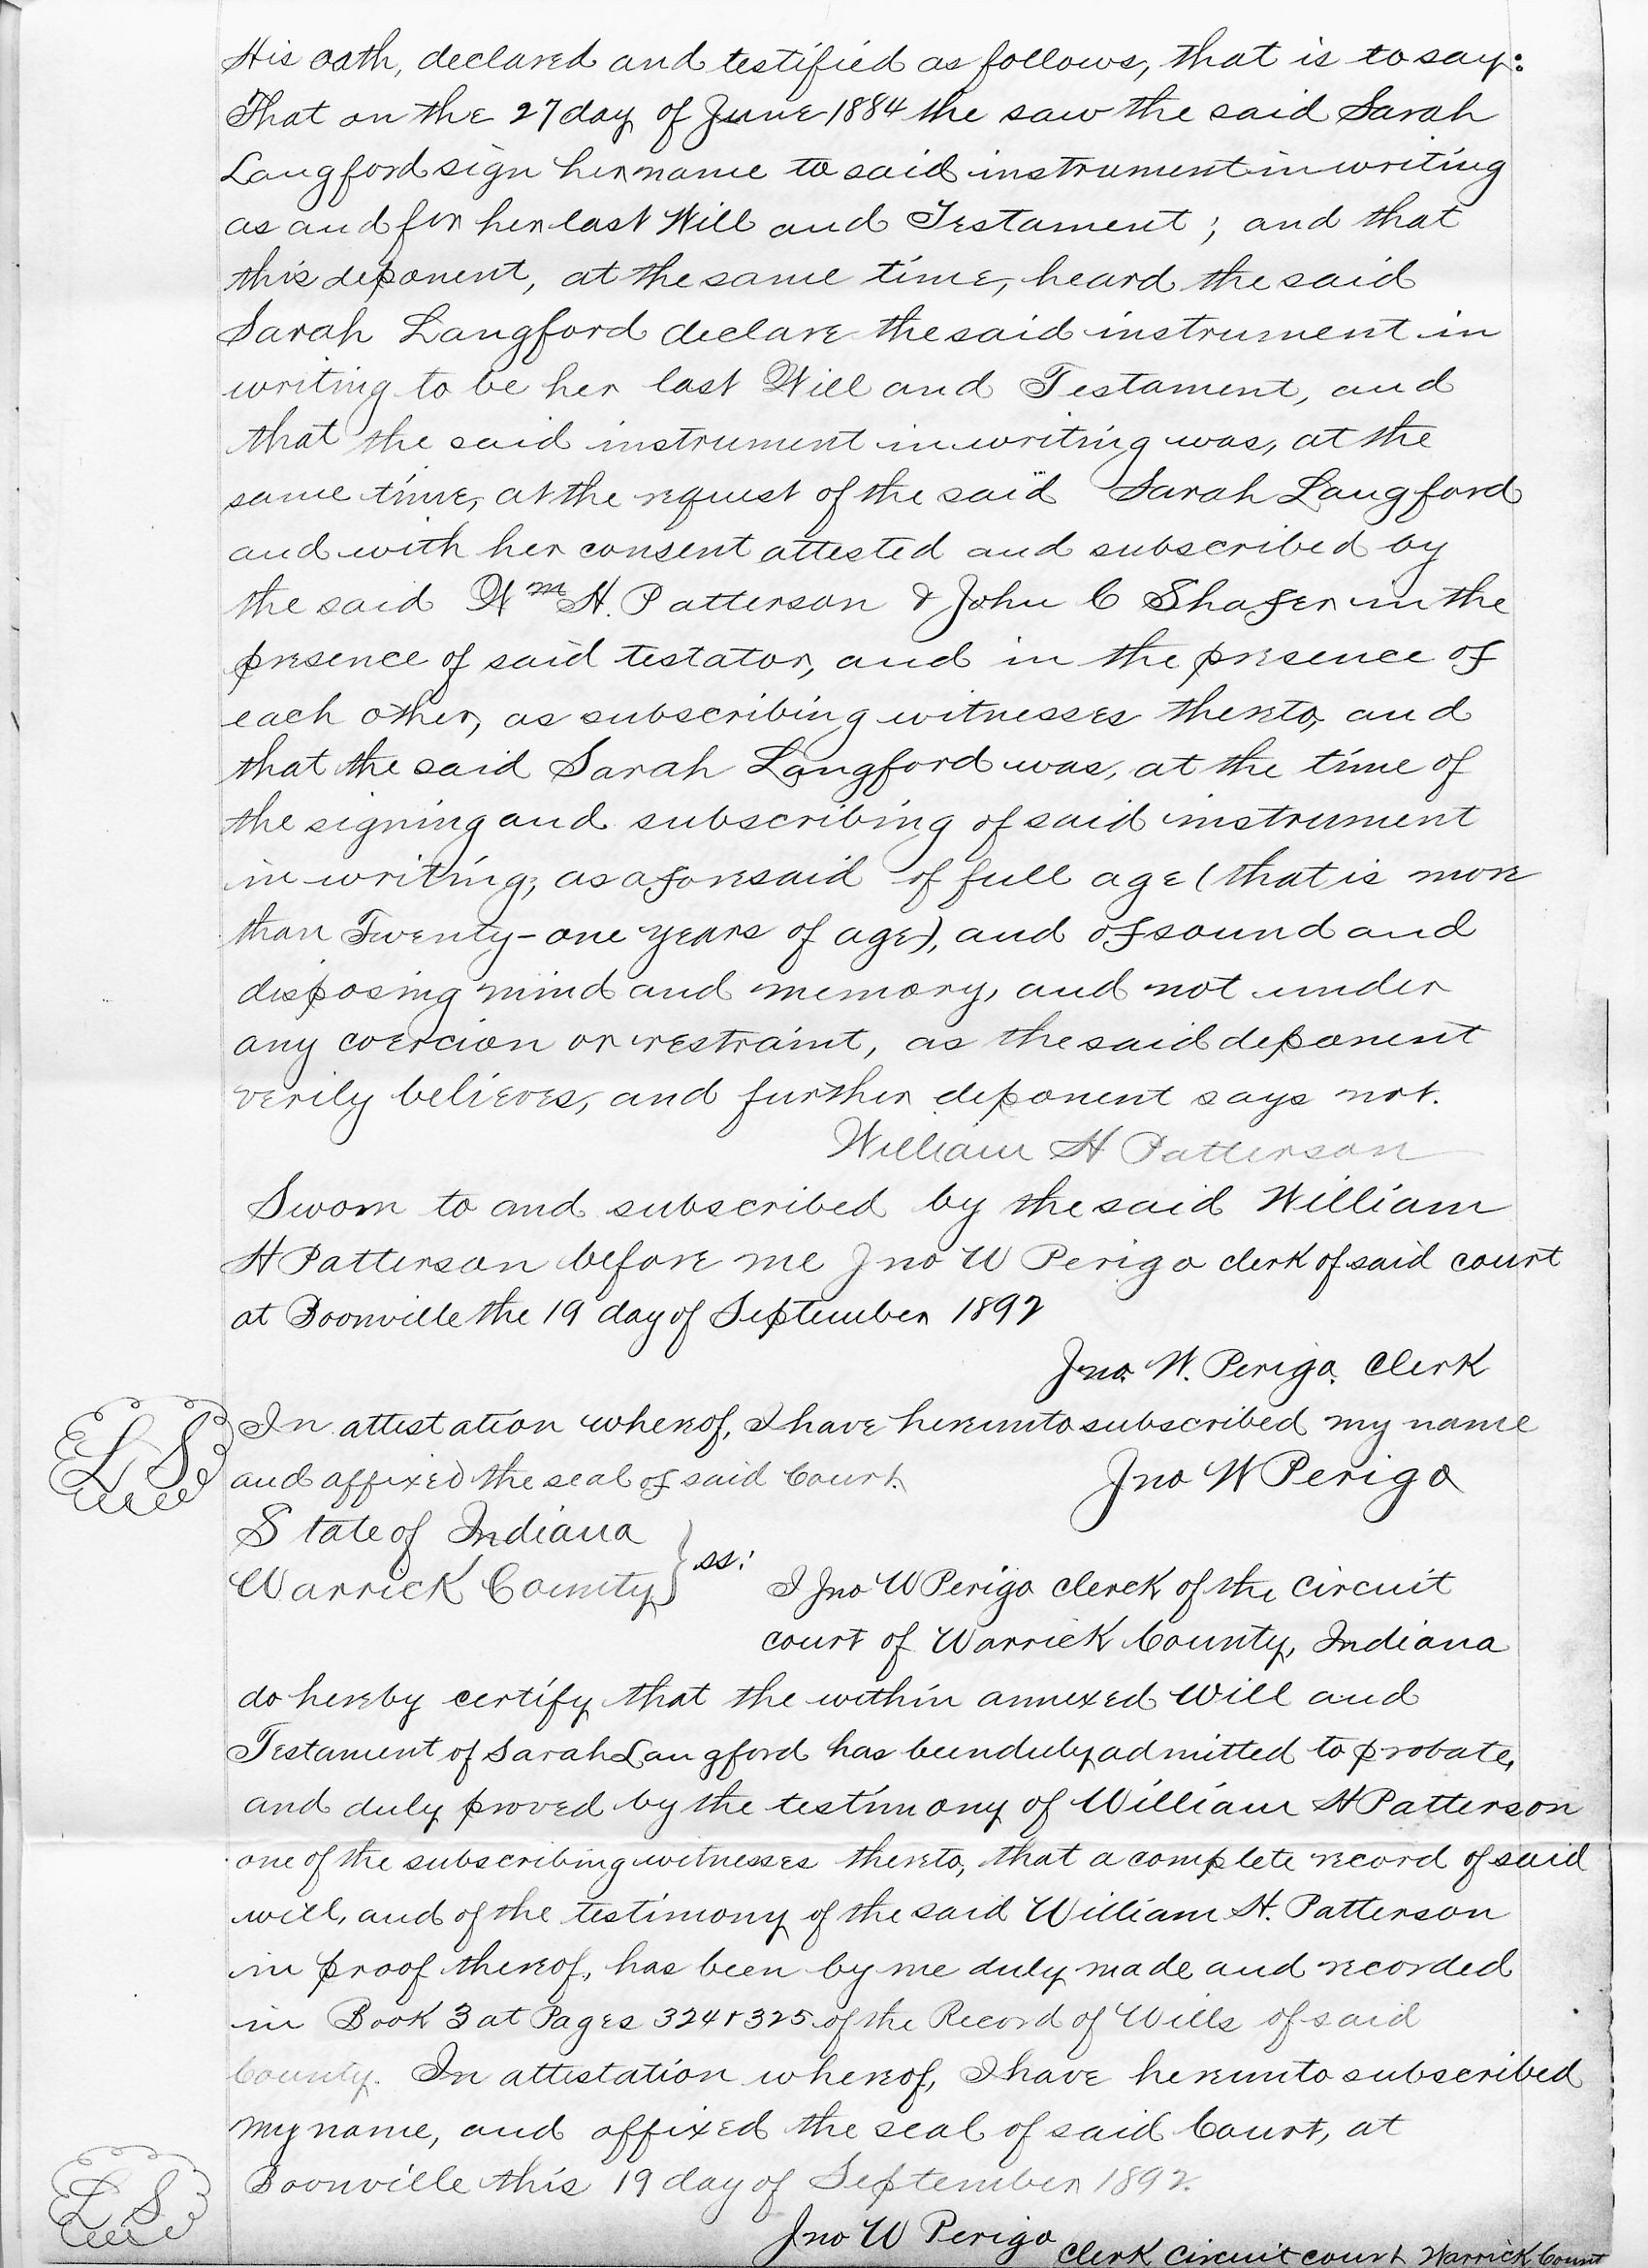 His oath, declared and testified as follows, that is to say:
That on the 27 day of June 1884 the saw the said Sarah
Langford sign her name to said instrument in writing
as and for her last Will and Testament; and that
this deponent, at the same time, heard the said
Sarah Langford declare the said instrument in
writing to be her last Will and Testament, and
that the said instrument in writing was, at the
same time, at the request of the said Sarah Langford
and with her consent attested and subscribed by
the said Wm H. Patterson & John C Shafer in the
presence of said testator, and in the presence of
each other, as subscribing witnesses thereto, and
that the said Sarah Langford was, at the time of
the signing and subscribing of said instrument
in writing, as aforesaid of full age (that is more
than Twenty-one years of age), and of sound and
disposing mind and memory, and not under
any coercion or restraint, as the said deponent
verily believes, and further deponent says not.
William H Patterson
Sworn to and subscribed by the said William
H Patterson before me Jno W Perigo clerk of said court
at Boonville the 19 day of September 1892
Jno. W. Perigo. Clerk
L S
In attestation whereof, I have hereunto subscribed my name
and affixed the seal of said Court. Jno W Perigo
State of Indiana
Warrick County } ss:
I Jno W Perigo clerck of the circuit
court of Warrick County, Indiana
do hereby certify that the within annexed Will and
Testament of Sarah Langford has been duly admitted to probate,
and duly proved by the testimony of William H Patterson
one of the subscribing witnesses thereto, that a complete record of said
will, and of the testimony of the said William H. Patterson
in proof thereof, has been by me duly made and recorded
in Book 3 at Pages 324 & 325 of the Record of Wills of said
County. In attestation whereof, I have hereunto subscribed
my name, and affixed the seal of said Court, at
Boonville this 19 day of September 1892.
L S
Jno W Perigo Clerk Circuit court Warrick Count